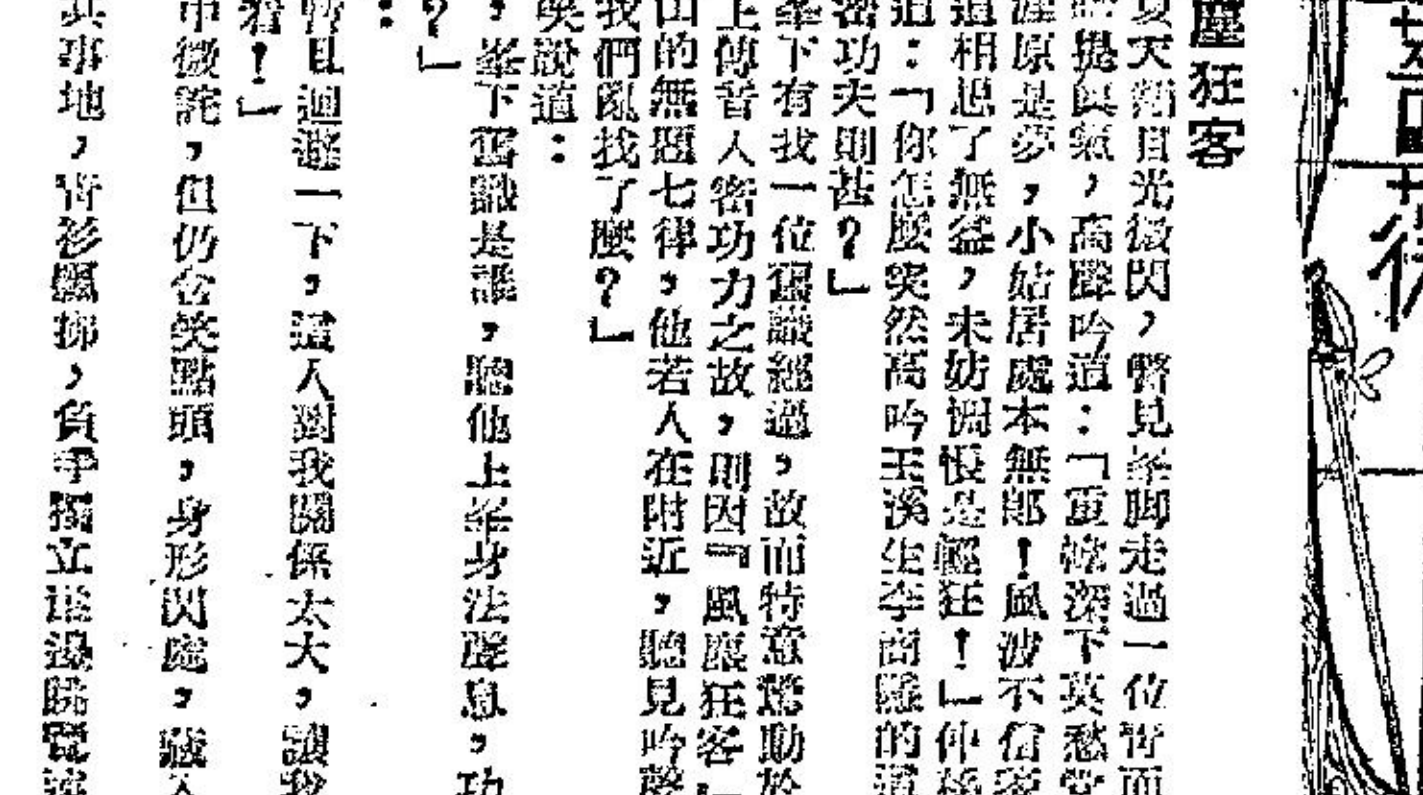 塵狂客
夏天翔目光微閃，瞥見峯脚走過一位靑
提眞氣，高聲吟道：「重帷深下莫愁堂
涯原是夢，小姑居處本無郞！風波不信菱
道相思了無益，未妨惆悵是輕狂！」仲孫
道：「你怎麼突然高吟玉溪生李商隱的這
密功夫則甚？」
峯下有我一位舊識經過，故而特意驚動於
上傳音入密功力之故，則因「風塵狂客」
山的無題七律，他若人在附近，聽見吟聲
我們亂找了麼？」
笑說道：
，峯下舊識是誰，聽他上峯身法聲息，功
？」
：
暫且迴避一下，這人對我關係太大，讓我
着！」
中微詫，但仍含笑點頭，身形閃處，藏入
其事地，靑衫飄拂，負手獨立